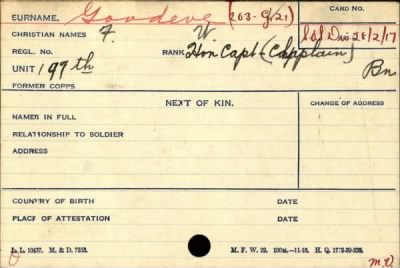 SURNAME Goodeve (203-G-21) CARD NO.
CHRISTIAN NAMES F. W. S.O.S. Dis: 28/2/17
REGL. NO. RANK Hon Capt (Chaplain)
UNIT 197th Bn
FORMER CORPS
NEXT OF KIN. CHANGE OF ADDRESS
NAMES IN FULL
RELATIONSHIP TO SOLDIER
ADDRESS
COUNTRY OF BIRTH DATE
PLACE OF ATTESTATION DATE
L. L. 10437. M. & D. 7233. M. F. W. 22. 100M.-11-16. H. Q. 1772-39-339.